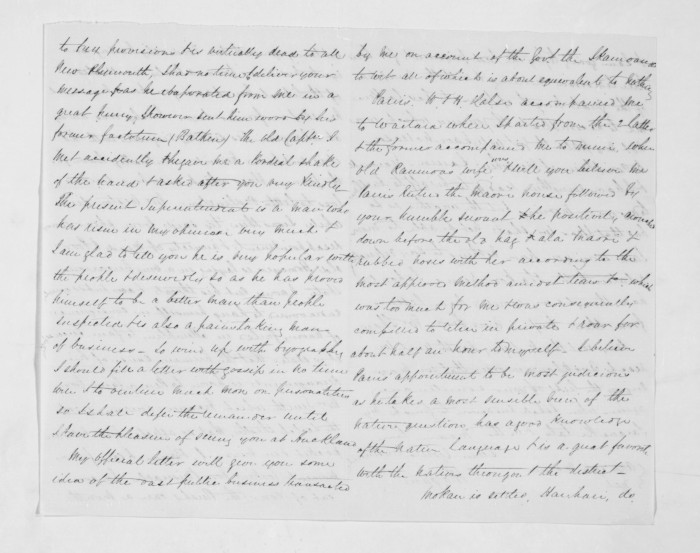 to buy provisions & is virtually dead to all
New Plymouth, I had no time to deliver your
message & as he evaporated from me in a
great hurry, I however sent him word by his
former factotum, Watkins the old Capt. I
met accidently & he gave me a cordial shake
of the hand & asked after you very kindly
The present Superintendent is a man who
has risen in my opinion very much &
I am glad to tell you he is very popular with
the people & deservedly so as he has proved
himself to be a better man than people
suspected & is also a painstaking man
of business - to wind up with byography
I should fill a letter with gossip in no time
were I to venture much more on personalities
so I shall defer the remainder until
I have the pleasure of seeing you at Auckland
My official letter will give you some
idea of the vast public business transacted
by me on account of the Govt. the
to wit all of which is about equivalent to nothing
Parris, W & H. Halse accompanied me
to Waitara where I started from the 2 latter
& the former accompanied me to Urenui, when
old wife was & will you believe me
Parris enters the maori house followed by
your humble servant & he positively
down before the old hag & a la maori &
rubbed noses with her according to the
most approved method amidst tears &c. which
was too much for me & was consequently
compelled to clear in private & roar for
about half an hour to myself. I believe
Parris appointment to be most judicious
as he takes a most sensible view of the
native question, has a good knowledge
of the Native Language & is a great favorite
with the natives throughout the district -
Mokau is settled, do.